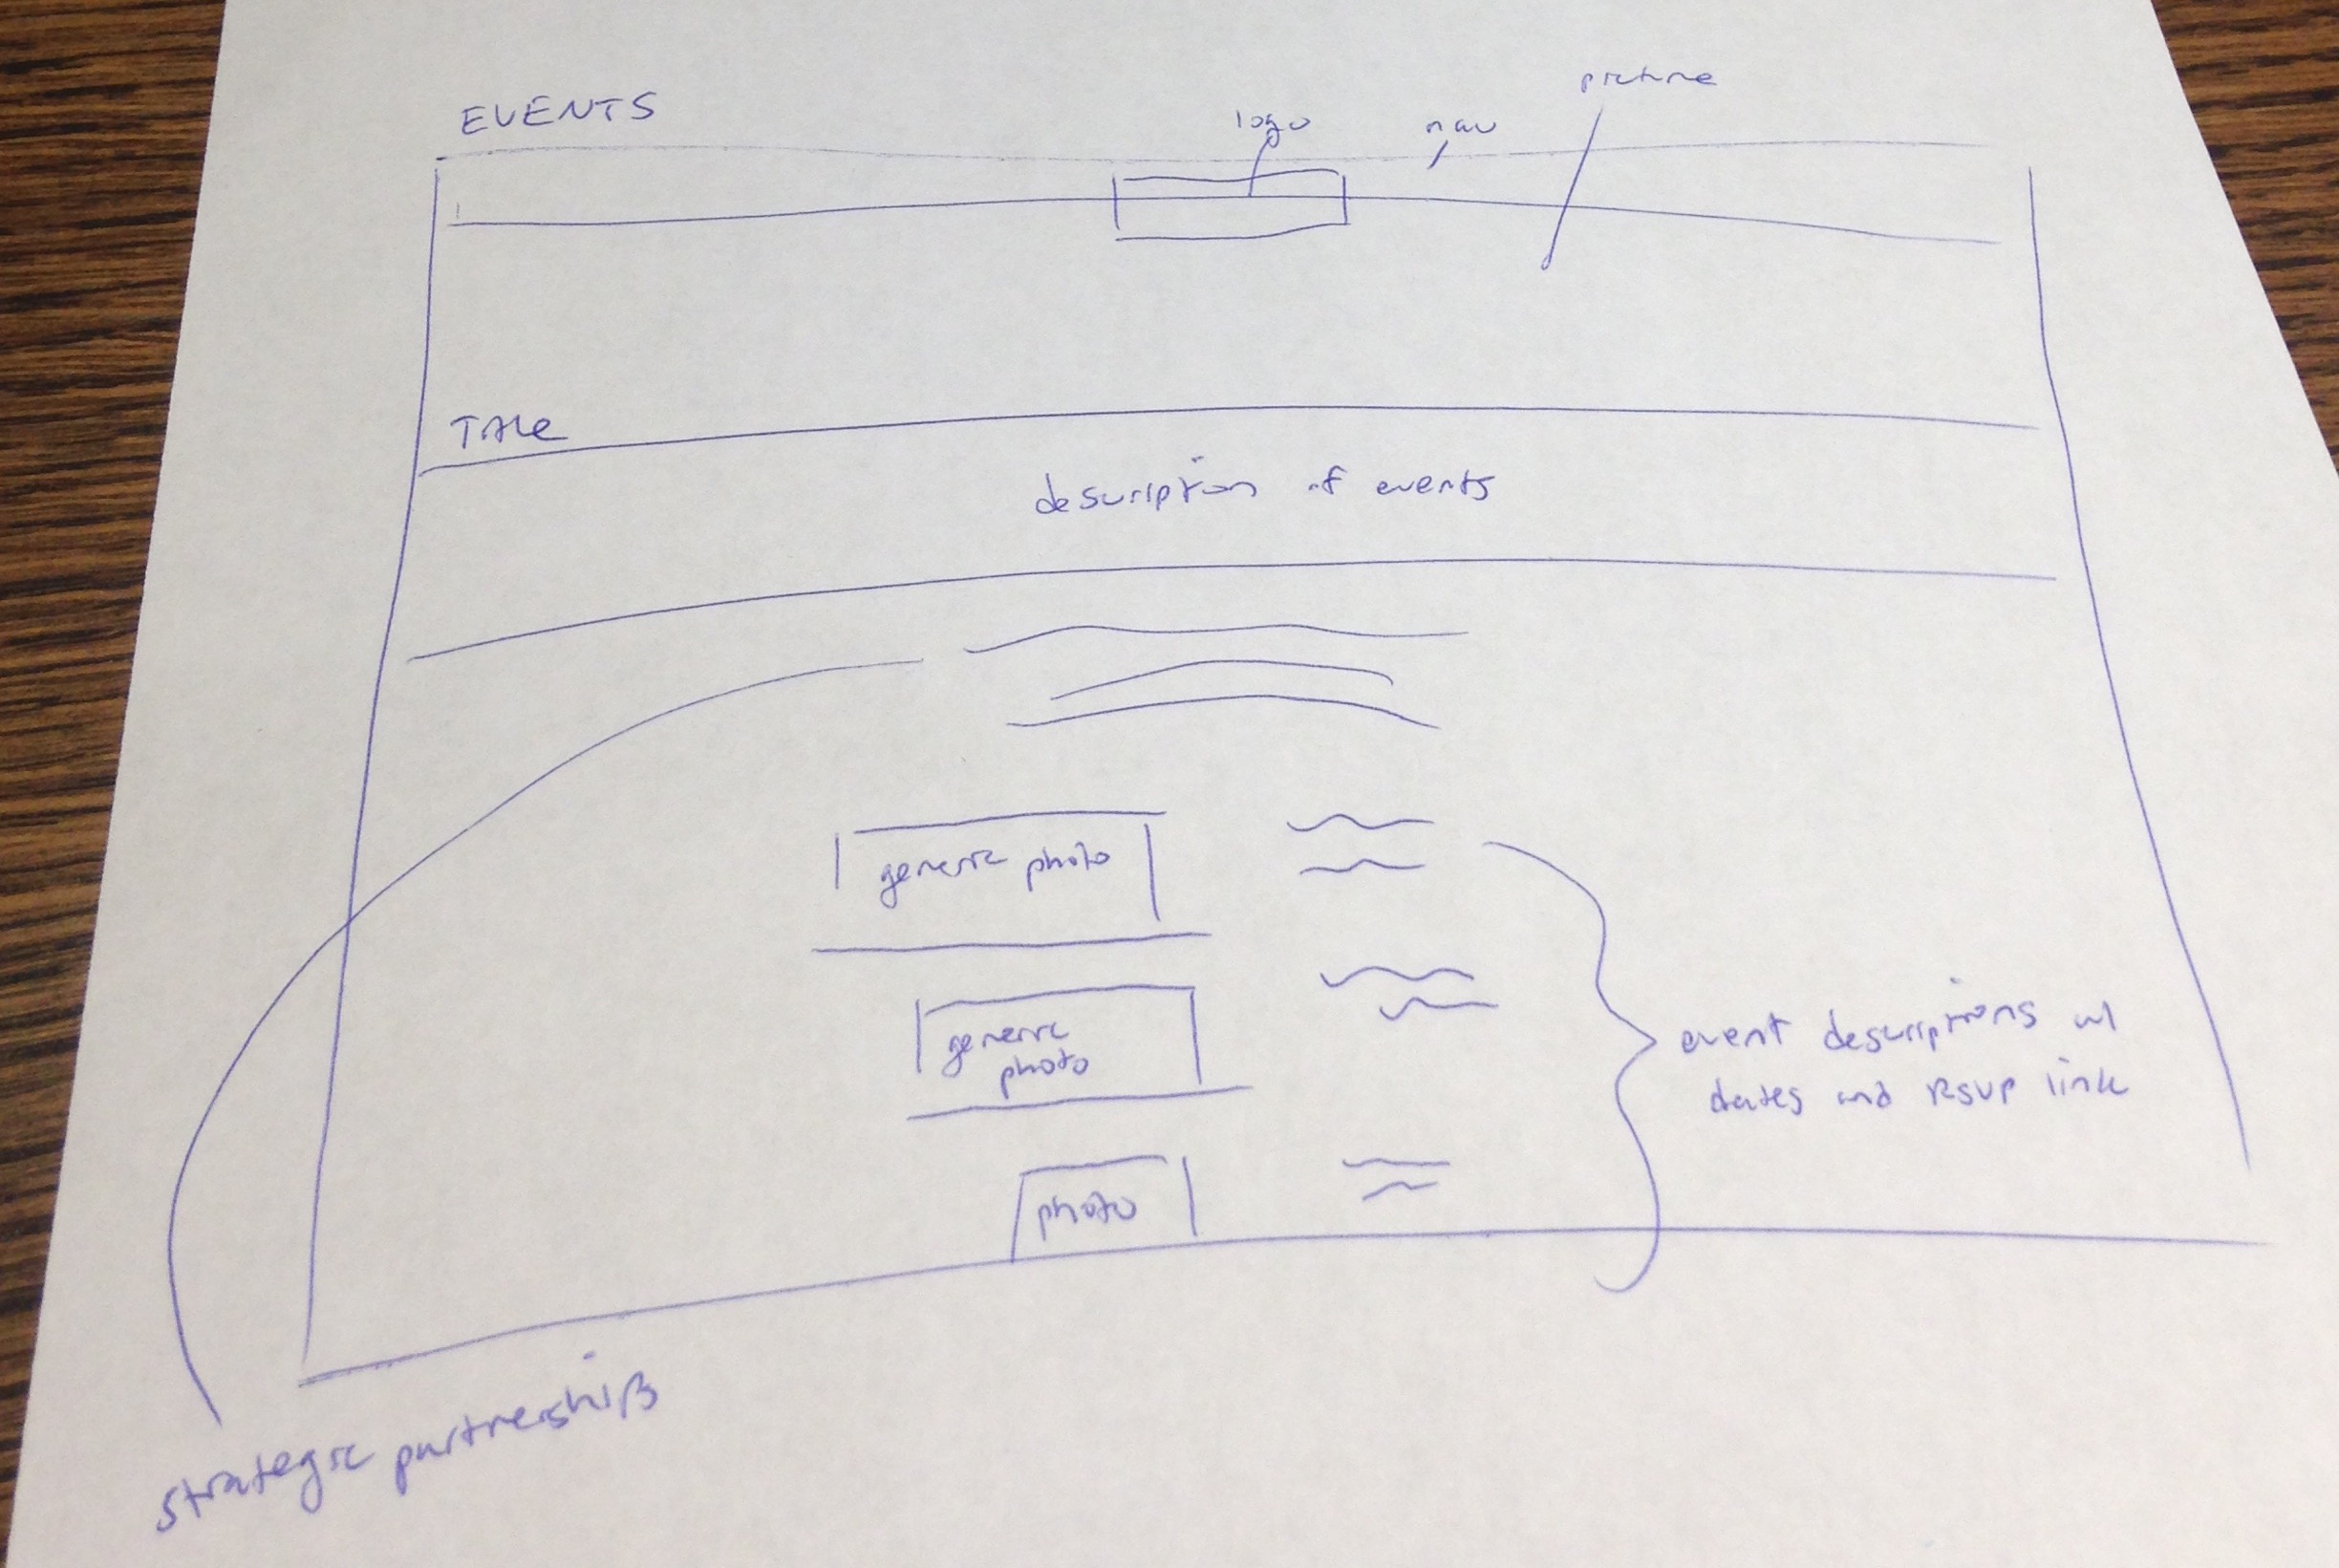 EVENTS
logo
nav
picture
Title
description of events
generic photo
generic
photo
photo
event descriptions w/
dates and RSVP link
strategic partnerships